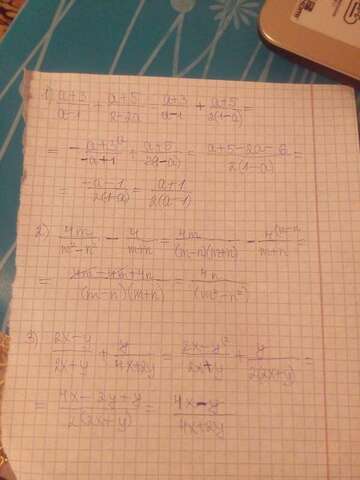 1) (a+3)/(a-1) + (a+5)/(2-2a) = (a+3)/(a-1) + (a+5)/(2(1-a)) =
= -(a+3)²/(-a+1) + (a+5)/(2(1-a)) = (a+5-2a-6)/(2(1-a))
= (-a-1)/(2(1-a)) = (a+1)/(2(a-1))
2) 4m/(m²-n²) - 4/(m+n) = 4m/((m-n)(m+n)) - 4(m-n)/(m+n) =
= (4m-4m+4n)/((m-n)(m+n)) = 4n/(m²-n²)
3) (2x-y)/(2x+y) + y/(4x+2y) = (2x-y)²/(2x+y) + y/(2(2x+y)) =
= (4x-2y+y)/(2(2x+y)) = (4x-y)/(4x+2y)